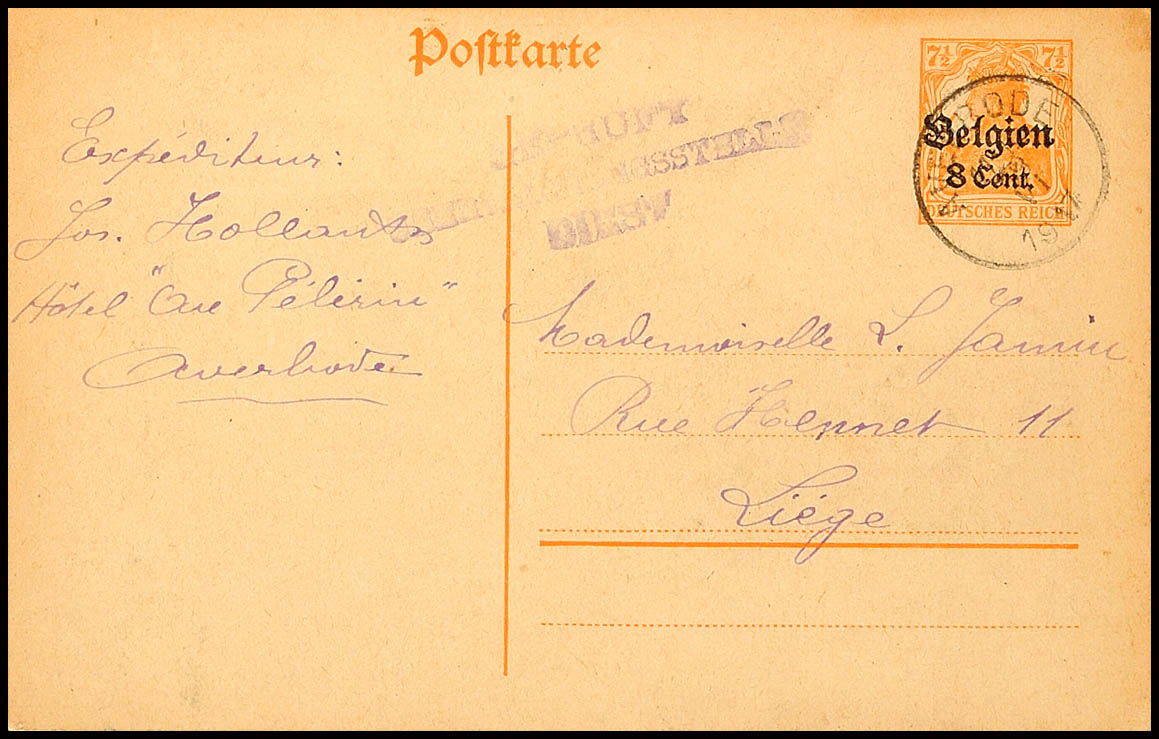 Postkarte
7½ 7½
Belgien
8 Cent.
DEUTSCHES REICH
19
GEPRÜFT
DIEST
Expéditeur:
Jos. Hollants
Hôtel "Au Pélerin"
Averbode
Mademoiselle L. Jamin
Rue Hennet 11
Liége